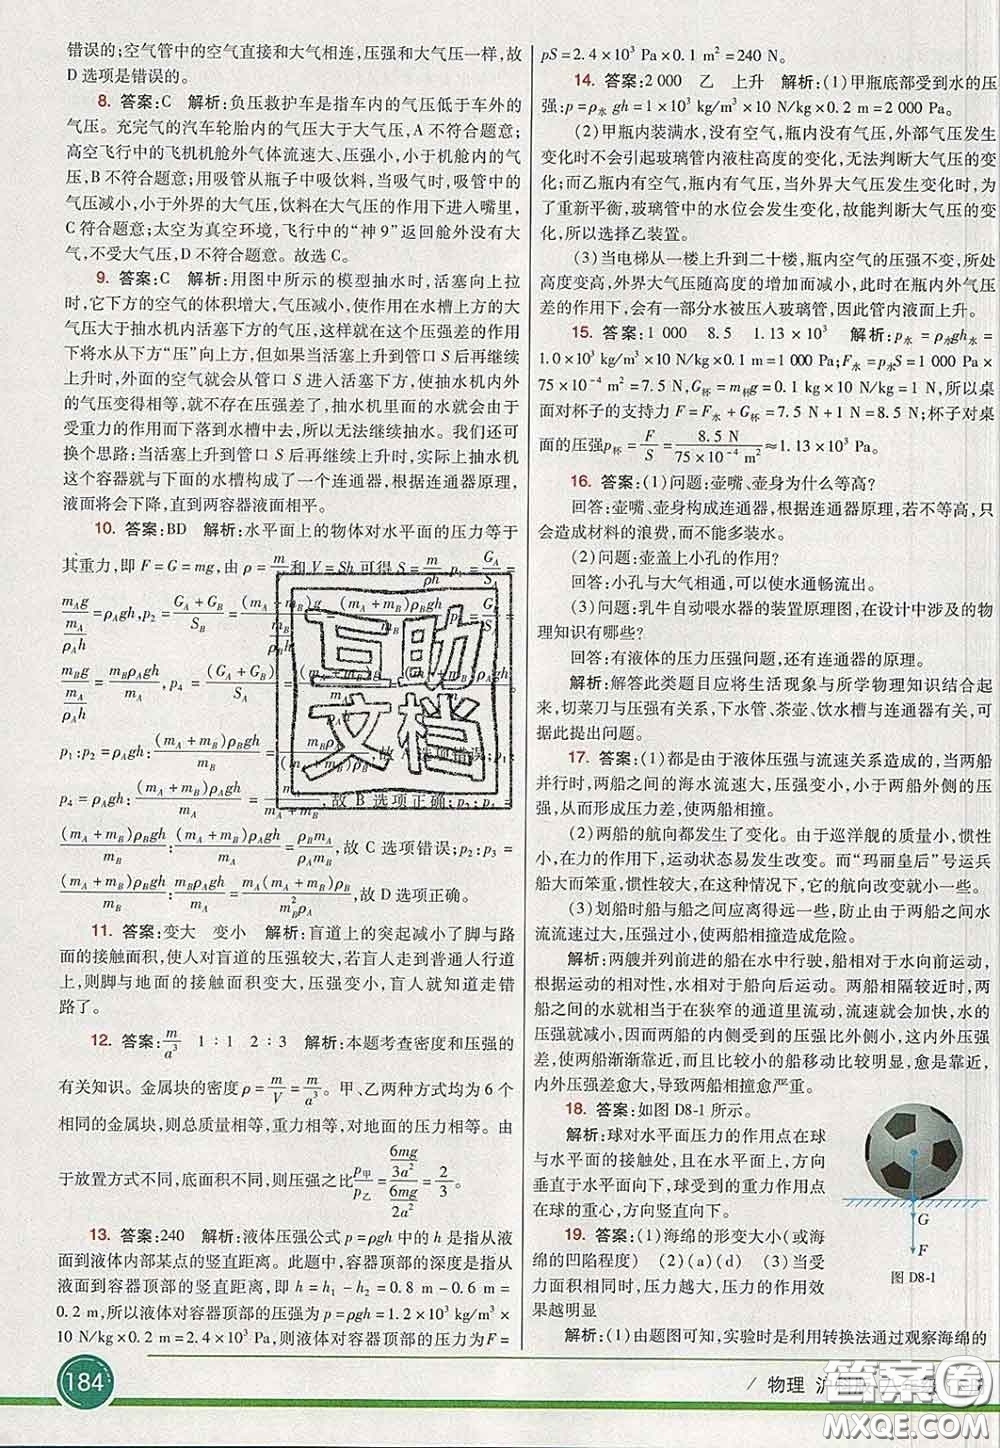 错误的;空气管中的空气直接和大气相连,压强和大气压一样,故
D 选项是错误的。
8. 答案:C 解析:负压救护车是指车内的气压低于车外的
气压。充完气的汽车轮胎内的气压大于大气压,A 不符合题意;
高空飞行中的飞机机舱外气体流速大、压强小,小于机舱内的气
压,B 不符合题意;用吸管从瓶子中吸饮料,当吸气时,吸管中的
气压减小,小于外界的大气压,饮料在大气压的作用下进入嘴里,
C 符合题意;太空为真空环境,飞行中的“神 9”返回舱外没有大气
,不受大气压,D 不符合题意。故选 C。
9. 答案:C 解析:用图中所示的模型抽水时,活塞向上拉
时,它下方的空气的体积增大,气压减小,使作用在水槽上方的大
气压大于抽水机内活塞下方的气压,这样就在这个压强差的作用
下将水从下方“压”向上方,但如果当活塞上升到管口 S 后再继续
上升时,外面的空气就会从管口 S 进入活塞下方,使抽水机内外
的气压变得相等,就不存在压强差了,抽水机里面的水就会由于
受重力的作用而下落到水槽中去,所以无法继续抽水。我们还可
换个思路:当活塞上升到管口 S 再继续上升时,实际上抽水机
这个容器就与下面的水槽构成了一个连通器,根据连通器原理,
液面将会下降,直到两容器液面相平。
10. 答案:BD 解析:水平面上的物体对水平面的压力等于
其重力,即 F=G=mg,由 ρ=m/V 和 V=Sh 可得 S=m/ρh,p₁=G_A/S_A=
(m_Ag)/(m_A/ρ_Ah)=ρ_Agh,p₂=(G_A+G_B)/S_B=
(m_Bg)/(m_B/ρ_Bh)=ρ_Bgh,p₄=(G_A+G_B)/S_A=
p₁:p₂=ρ_Agh:((m_A+m_B)ρ_Bgh)/m_B=
p₄=ρ_Agh:((m_A+m_B)ρ_Agh)/m_A=,故 B 选项正确;p₂:p₄=
((m_A+m_B)ρ_Bgh)/m_B:((m_A+m_B)ρ_Agh)/m_A=ρ_Bm_A/ρ_Am_B,故 C 选项错误;p₂:p₃=
,故 D 选项正确。
11. 答案:变大 变小 解析:盲道上的突起减小了脚与路
面的接触面积,使人对盲道的压强变大;若走到普通人行道
上,则脚与地面的接触面积变大,压强变小,盲人就知道走错
路了。
12. 答案:m/a³ 1:1 2:3 解析:本题考查密度和压强的
有关知识。金属块的密度 ρ=m/V=m/a³。甲、乙两种方式均为 6 个
相同的金属块,质量相等,重力相等,对地面的压力相等。由
于放置方式不同,底面积不同,压强之比 p甲/p乙=(6mg/3a²)/(6mg/2a²)=2/3。
13. 答案:240 解析:液体压强公式 p=ρgh 中的 h 是指从液
面到液体内部某点的竖直距离。此题中,容器顶部的深度是指从
液面到容器顶部的竖直距离,即 h=h₁-h₂=0.8 m-0.6 m=
0.2 m,所以液体对容器顶部的压强为 p=ρgh=1.2×10³ kg/m³×
10 N/kg×0.2 m=2.4×10³ Pa,则液体对容器顶部的压力为F=
pS=2.4×10³ Pa×0.1 m²=240 N。
14. 答案:2 000 乙 上升 解析:(1)甲瓶底部受到水的压
强:p=ρ水gh=1×10³ kg/m³×10 N/kg×0.2 m=2 000 Pa。
(2)甲瓶内装满水,没有空气,瓶内没有气压,外部气压发生
变化时不会引起玻璃管内液柱高度的变化,无法判断大气压的变
化;而乙瓶内有空气,瓶内有气压,当外界大气压发生变化时,为
了重新平衡,玻璃管中的水位会发生变化,故能判断大气压的变
化。所以选择乙装置。
(3)当电梯从一楼上升到二十楼,瓶内空气的压强不变,所处
高度变高,外界大气压随高度的增加而减小,所以在瓶内外气压
差的作用下,会有一部分水被压入玻璃管,因此管内液面上升。
15. 答案:1 000 8.5 1.13×10³ 解析:p水=ρ水gh水=
1.0×10³ kg/m³×10 N/kg×0.1 m=1 000 Pa;F水=p水S=1 000 Pa×
75×10⁻⁴ m²=7.5 N,G杯=m杯g=0.1 kg×10 N/kg=1 N,所以桌
面对杯子的支持力 F=F水+G杯=7.5 N+1 N=8.5 N;杯子对桌
面的压强p杯=F/S=8.5 N/(75×10⁻⁴ m²)≈1.13×10³ Pa。
16. 答案:(1)问题:壶嘴、壶身为什么等高?
回答:壶嘴、壶身构成连通器,根据连通器原理,若不等高,只
会造成材料的浪费,而不能多装水。
(2)问题:壶盖上小孔的作用?
回答:小孔与大气相通,可以使水通畅流出。
(3)问题:乳牛自动喂水器的装置原理图,在设计中涉及的物
理知识有哪些?
回答:有液体的压力压强问题,还有连通器的原理。
解析:解答此类题目应将生活现象与所学物理知识结合起
来,切菜刀与压强有关系,下水管、茶壶、饮水槽与连通器有关,可
据此提出问题。
17. 答案:(1)都是由于液体压强与流速关系造成的,当两船
并行时,两船之间的海水流速大,压强变小,小于两船外侧的压
强,从而形成压力差,使两船相撞。
(2)两船的航向都发生了变化。由于巡洋舰的质量小,惯性
小,在力的作用下,运动状态易发生改变。而“玛丽皇后”号运兵
船大而笨重,惯性较大,在这种情况下,它的航向改变就小一些。
(3)划船时船与船之间应离得远一些,防止由于两船之间水
流流速过大,压强过小,使两船相撞造成危险。
解析:两艘并列前进的船在水中行驶,船相对于水向前运动,
根据运动的相对性,水相对于船向后运动。两船相隔较近时,两
船之间的水就相当于在狭窄的通道里流动,流速就会加快,水的
压强就减小,因而两船的内侧受到的压强比外侧小,这内外压强
差,使两船渐渐靠近,而且比较小的船移动比较明显,愈靠近,
内外压强差愈大,导致两船相撞愈严重。
18. 答案:如图 D8-1 所示。
解析:球对水平面压力的作用点在球
与水平面的接触处,且在水平面上,方向
垂直于水平面,球受到的重力作用点
在球的重心,方向竖直向下。
19. 答案:(1)海绵的形变大小(或海
绵的凹陷程度) (2)(a)(d) (3)当受
力面积相同时,压力越大,压力的作用效
果越明显
解析:(1)由题图可知,实验时是利用转换法通过观察海绵的
G
F
图 D8-1
互助
文档
184
/ 物理 沪
答案圈
MXQE.COM